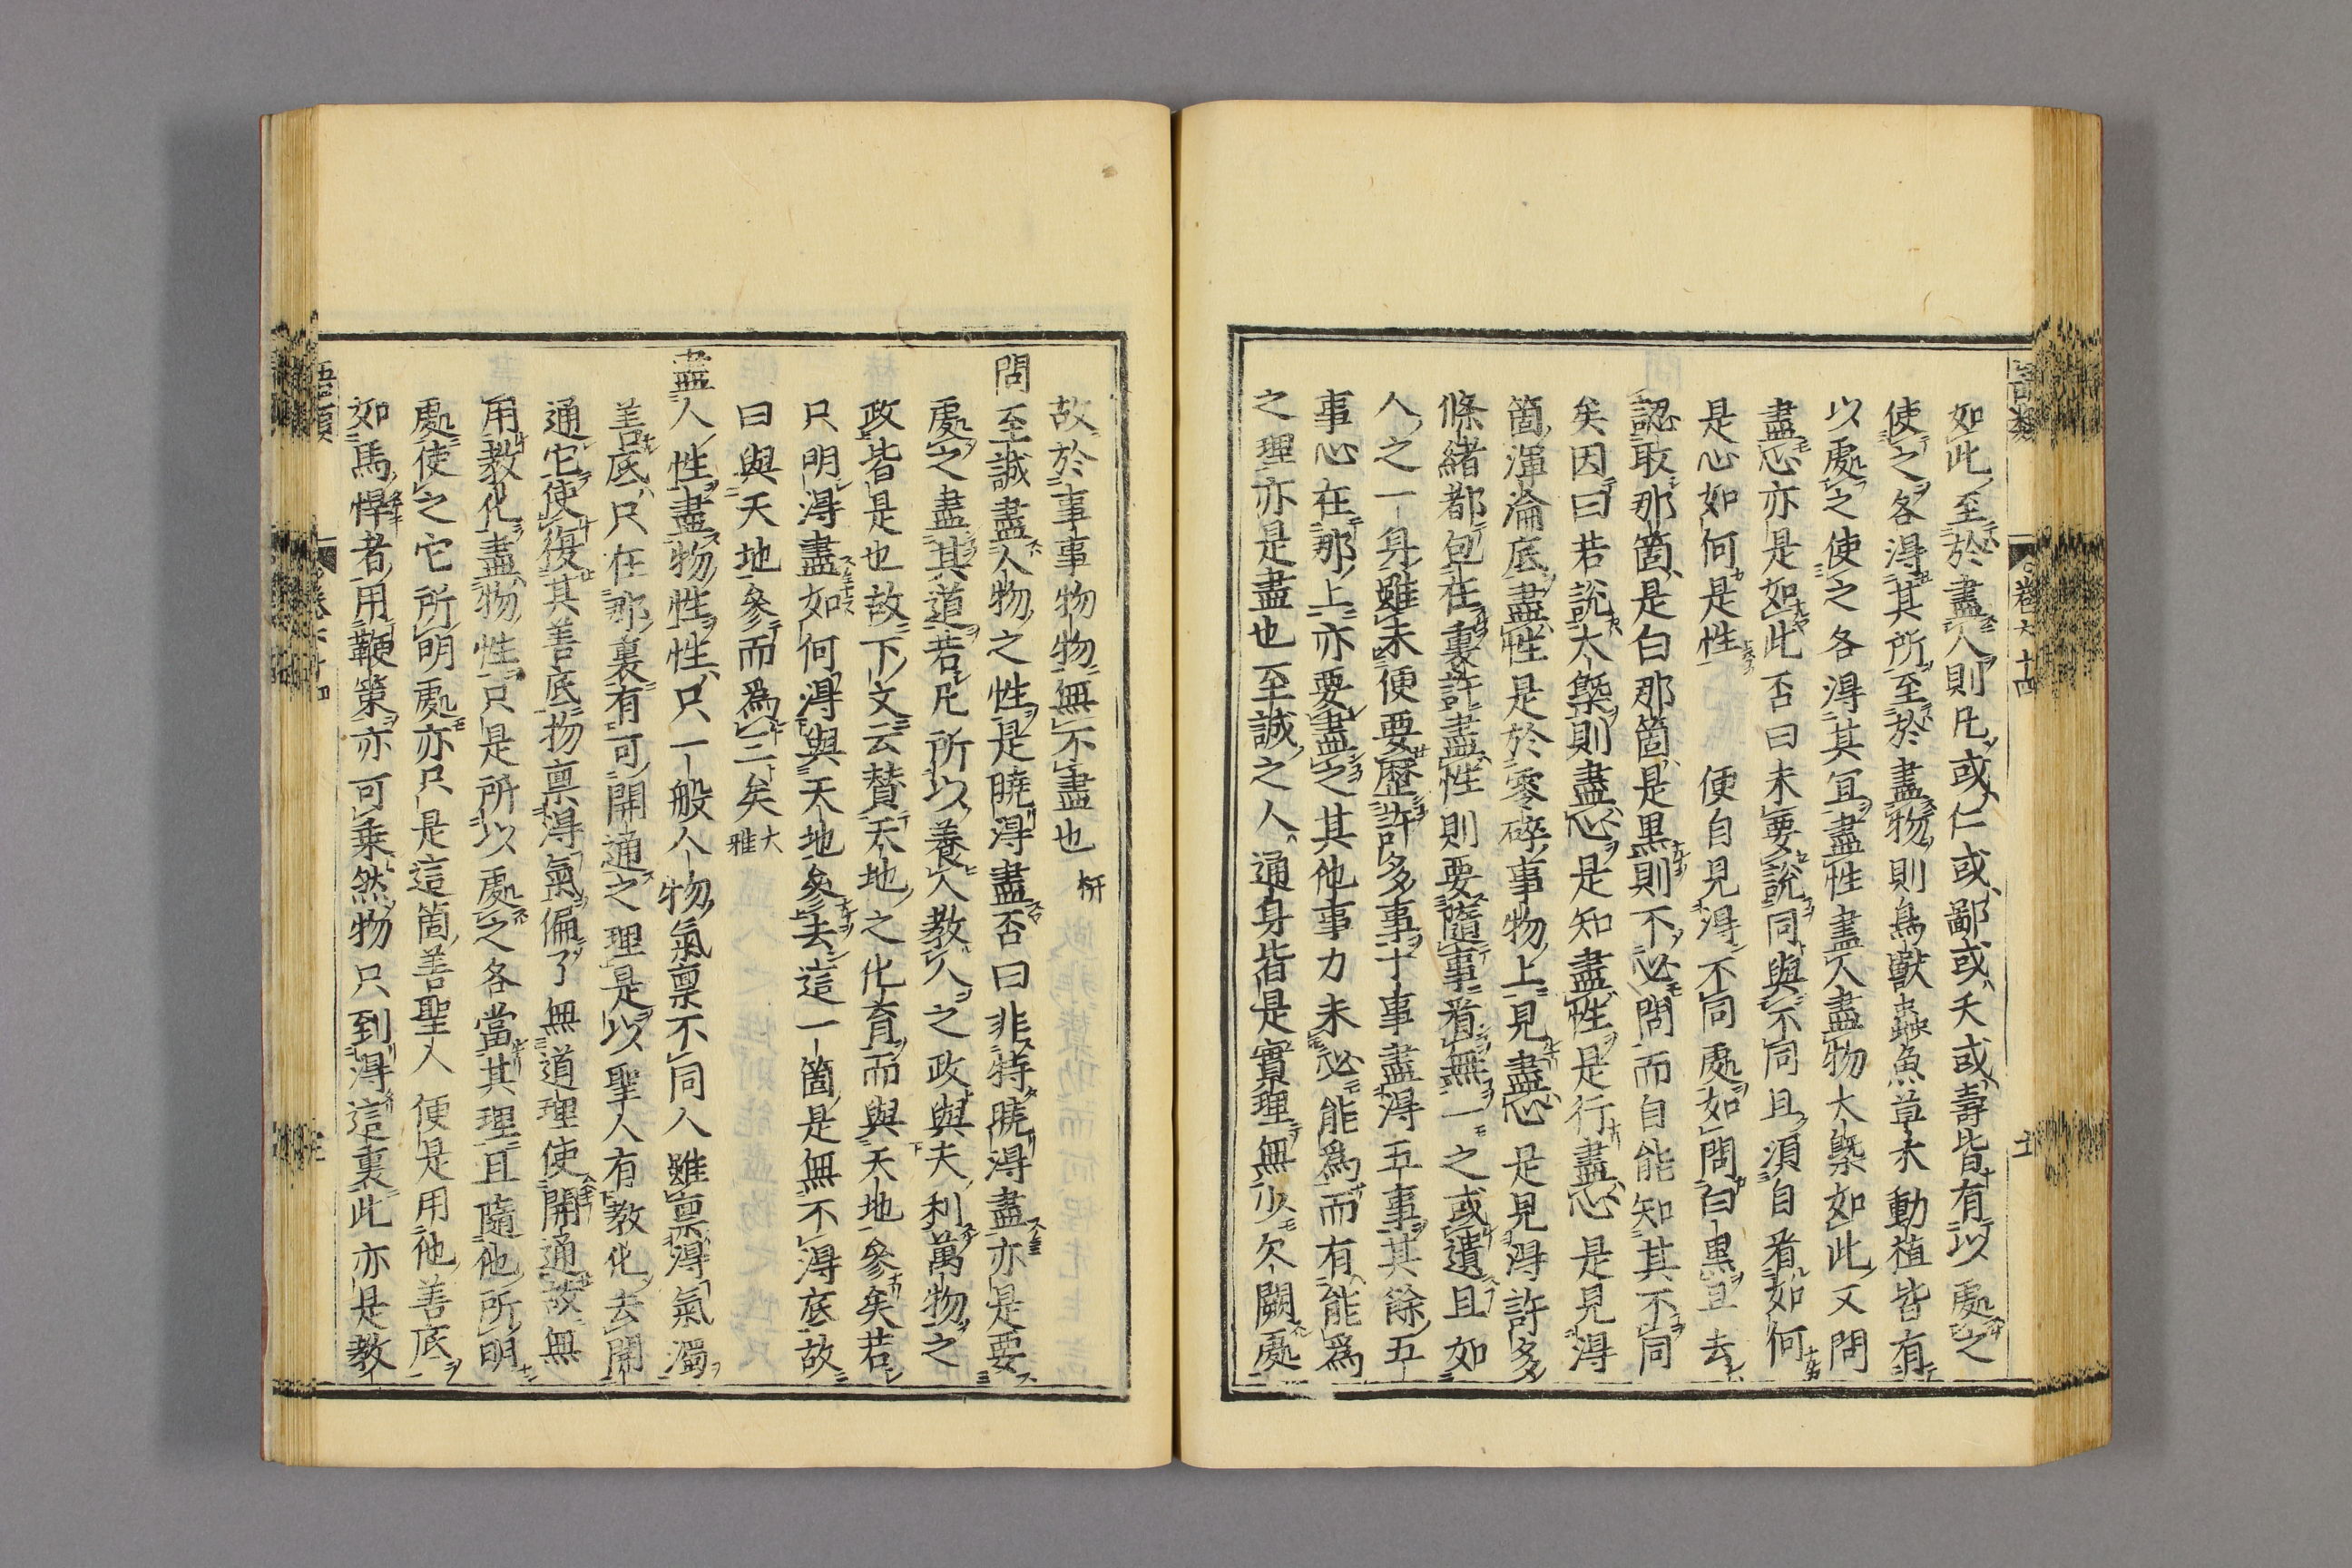 語類 卷六十四
如此至於盡人則凡或仁或鄙或夭或壽皆有以處之
使之各得其所至於盡物則鳥獸蟲魚草木動植皆有
以處之使之各得其宜盡性盡人盡物大槩如此又問
盡心亦是如此否曰未要說同與不同且須自看如何
是心如何是性 便自見得不同處如問白黑且去
認取那箇是白那箇是黑則不必問而自能知其不同
矣因曰若說大槩則盡心是知盡性是行盡心是見得
箇渾淪底盡性是於零碎事物上見盡心是見得許多
條緒都包在裏許盡性則要隨事看無一之或遺且如
人之一身雖未便要歷許多事十事盡得五事其餘五
事心在那上亦要盡之其他事力未必能爲而有能爲
之理亦是盡也至誠之人通身皆是實理無少欠闕處
故於事事物物無不盡也 枅
問至誠盡人物之性是曉得盡否曰非特曉得盡亦是要
處之盡其道若凡所以養人教人之政與夫利萬物之
政皆是也故下文云贊天地之化育而與天地參矣若
只明得盡如何得與天地參去這一箇是無不得底故
曰與天地參而爲三矣 大雅
盡人性盡物性性只一般人物氣禀不同人雖禀得氣濁
善底只在那裏有可開通之理是以聖人有教化去開
通它使復其善底物禀得氣偏了無道理使開通故無
用教化盡物性只是所以處之各當其理且隨他所明
處使之它所明處亦只是這箇善聖人便是用他善底
如馬悍者用鞭策亦可乗然物只到得這裏此亦是教
語類